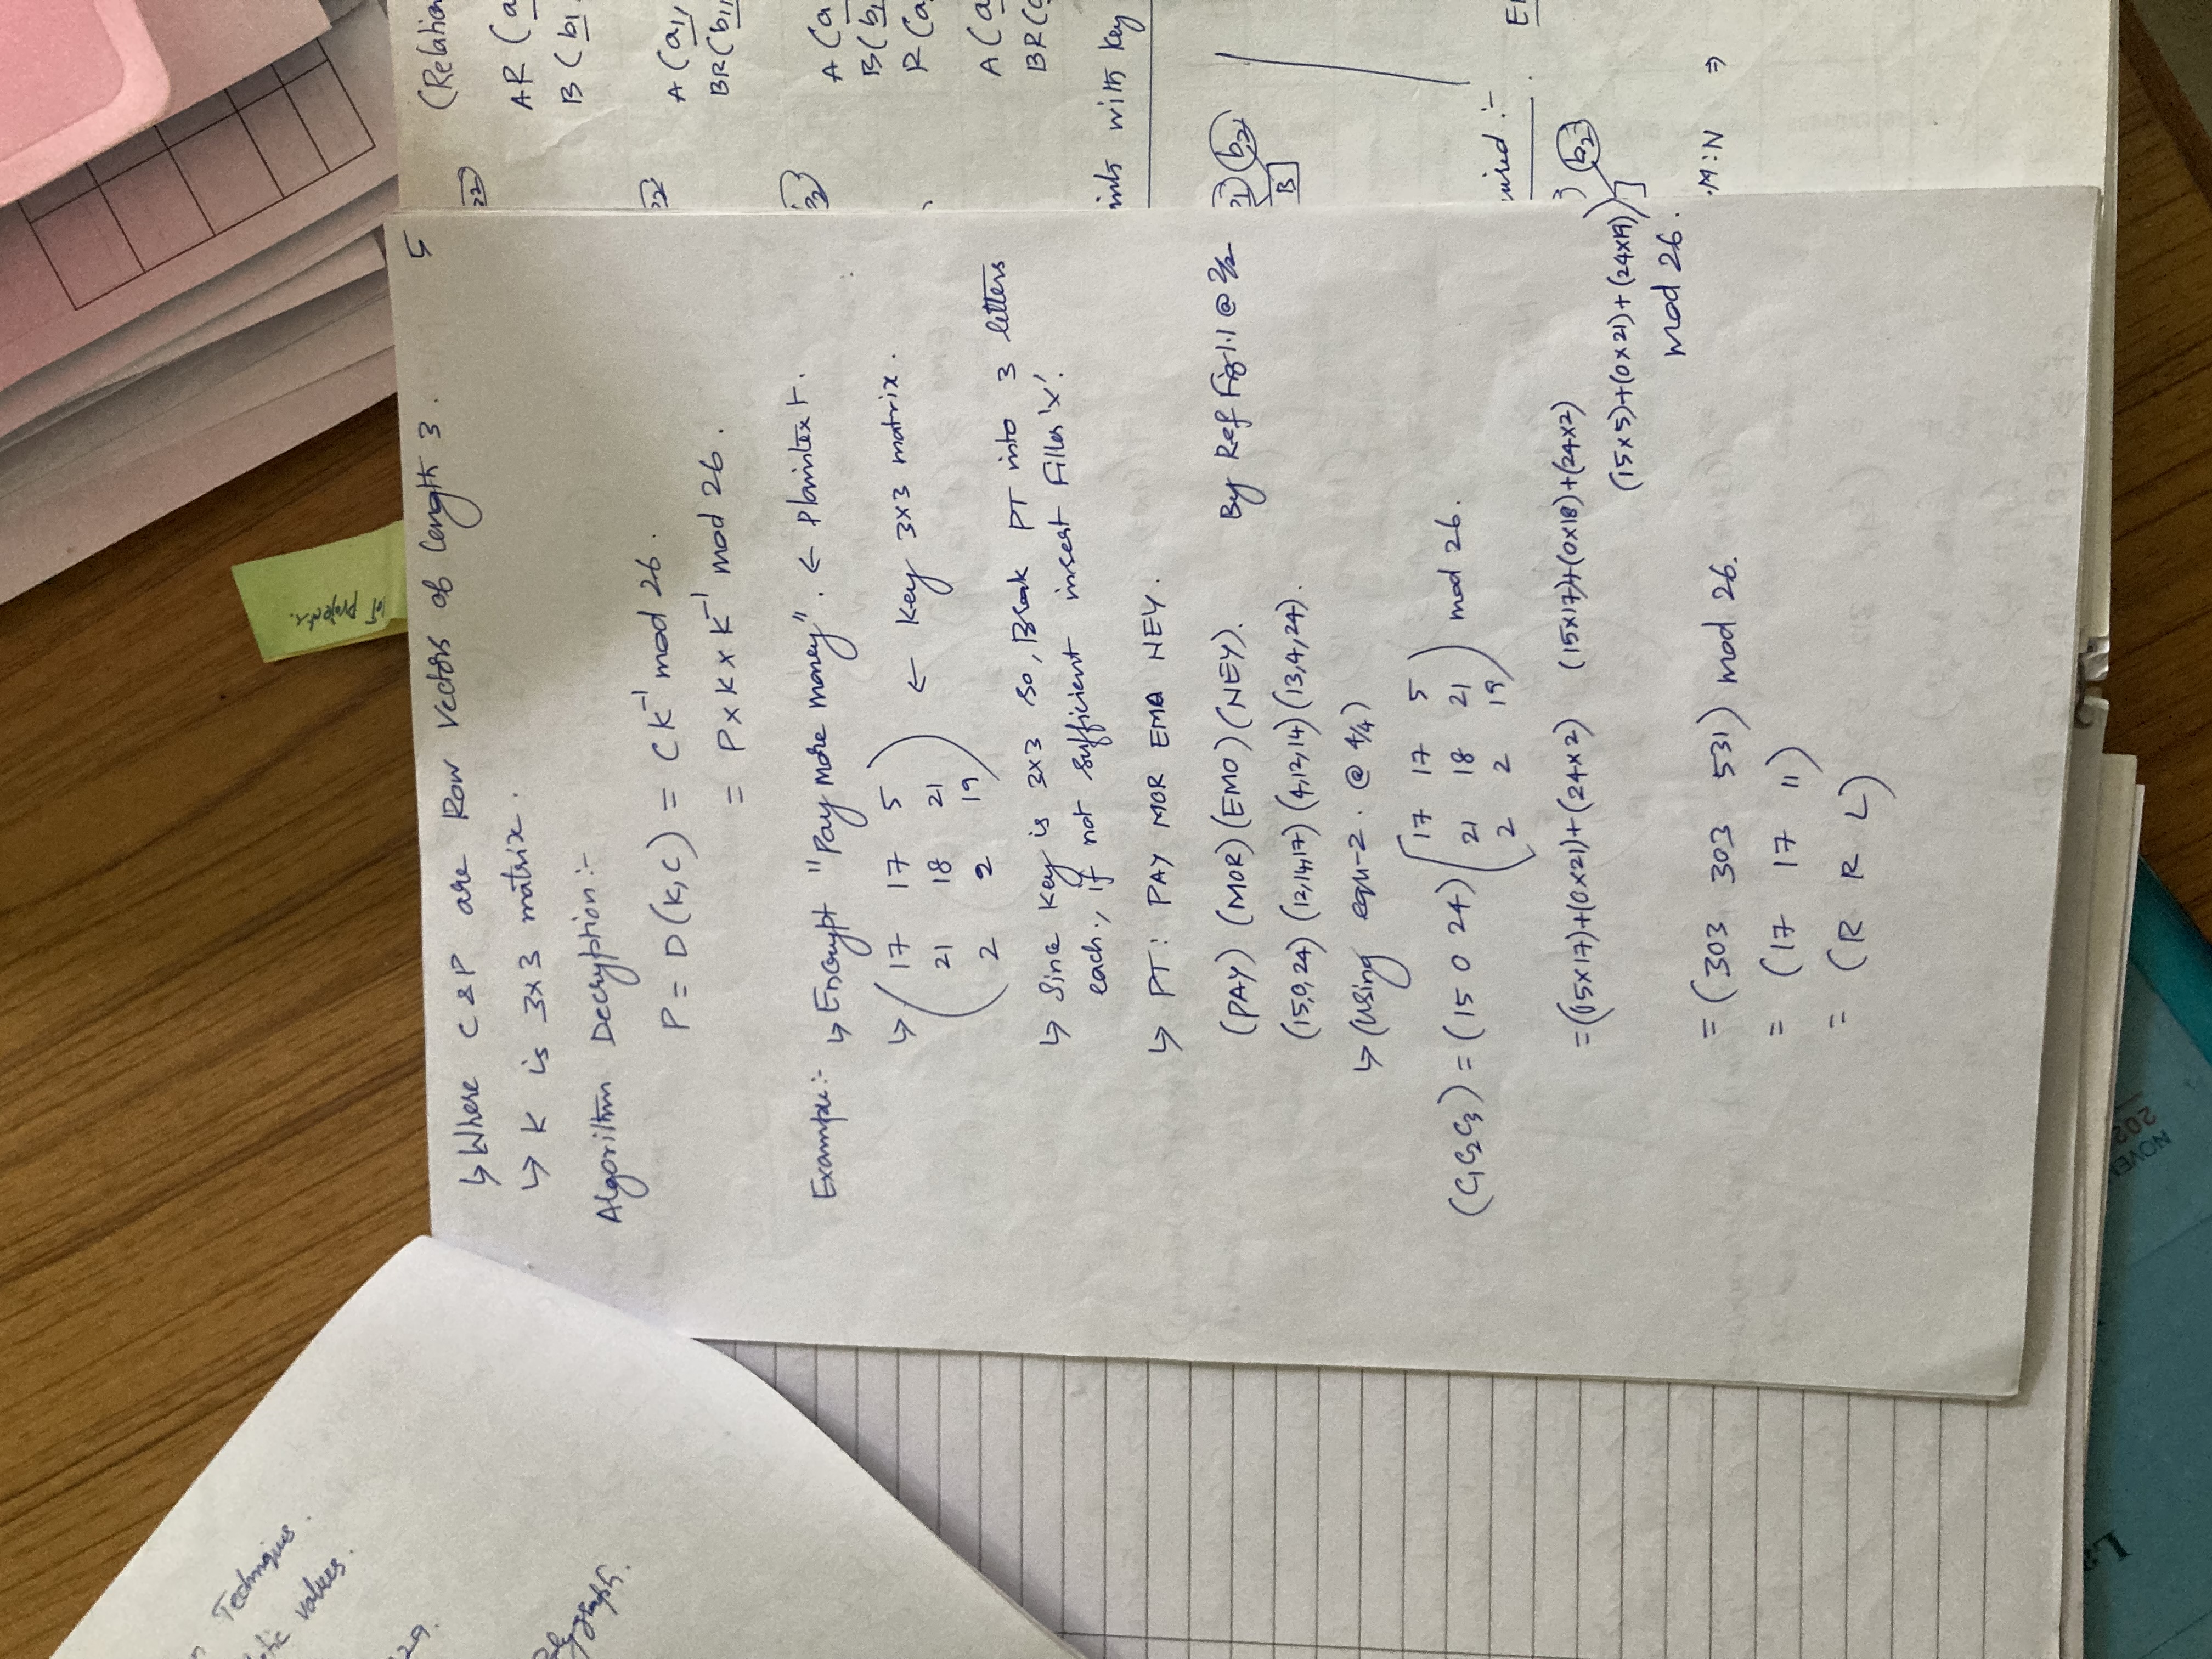 Techniques.
tic values.
129.
Polygraph.
IoT projects.
5
↳ Where C & P are Row Vectors of length 3.
↳ K is 3x3 matrix.
Algorithm Decryption:-
P = D(K,C) = CK⁻¹ mod 26.
= P x K x K⁻¹ mod 26.
Example:- ↳ Encrypt "Pay more money". ← Plaintext.
↳ ( 17 17 5
21 18 21
2 2 19 ) ← Key 3x3 matrix.
↳ Since Key is 3x3 so, Break PT into 3 letters
each., if not sufficient insert Filler 'x'.
↳ PT: PAY MOR EMO NEY.
(PAY) (MOR) (EMO) (NEY). By Ref Fig 1.1 @ 2/2
(15,0,24) (12,14,17) (4,12,14) (13,4,24).
↳ (Using equ-2. @ 4/4)
(C₁C₂C₃) = (15 0 24) ( 17 17 5
21 18 21
2 2 19 ) mod 26.
= ((15x17)+(0x21)+(24x2) (15x17)+(0x18)+(24x2)
(15x5)+(0x21)+(24x19))
mod 26.
= (303 303 531) mod 26.
= (17 17 11)
= (R R L)
(Relation
AR (a
B (b1
A (a1,
BR (b1,
A (a
B (b1
R (a
A (a
BR (
ints with key
b2
B
uired :-
b2
M:N ⇒
NOVE
202